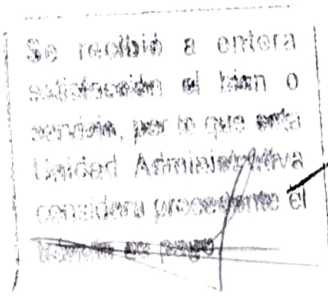 Se recibió a entera
satisfacción el bien o
servicio, por lo que esta
Unidad Administrativa
considera procedente el
su pago